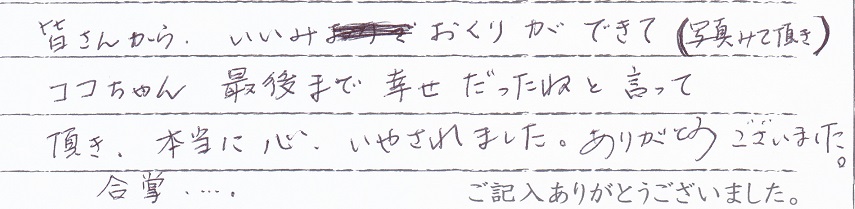 皆さんから、いいみ おくりができて(写真みて頂き)
ココちゃん 最後まで幸せだったねと言って
頂き、本当に心、いやされました。ありがとうございました。
合掌.....
ご記入ありがとうございました。